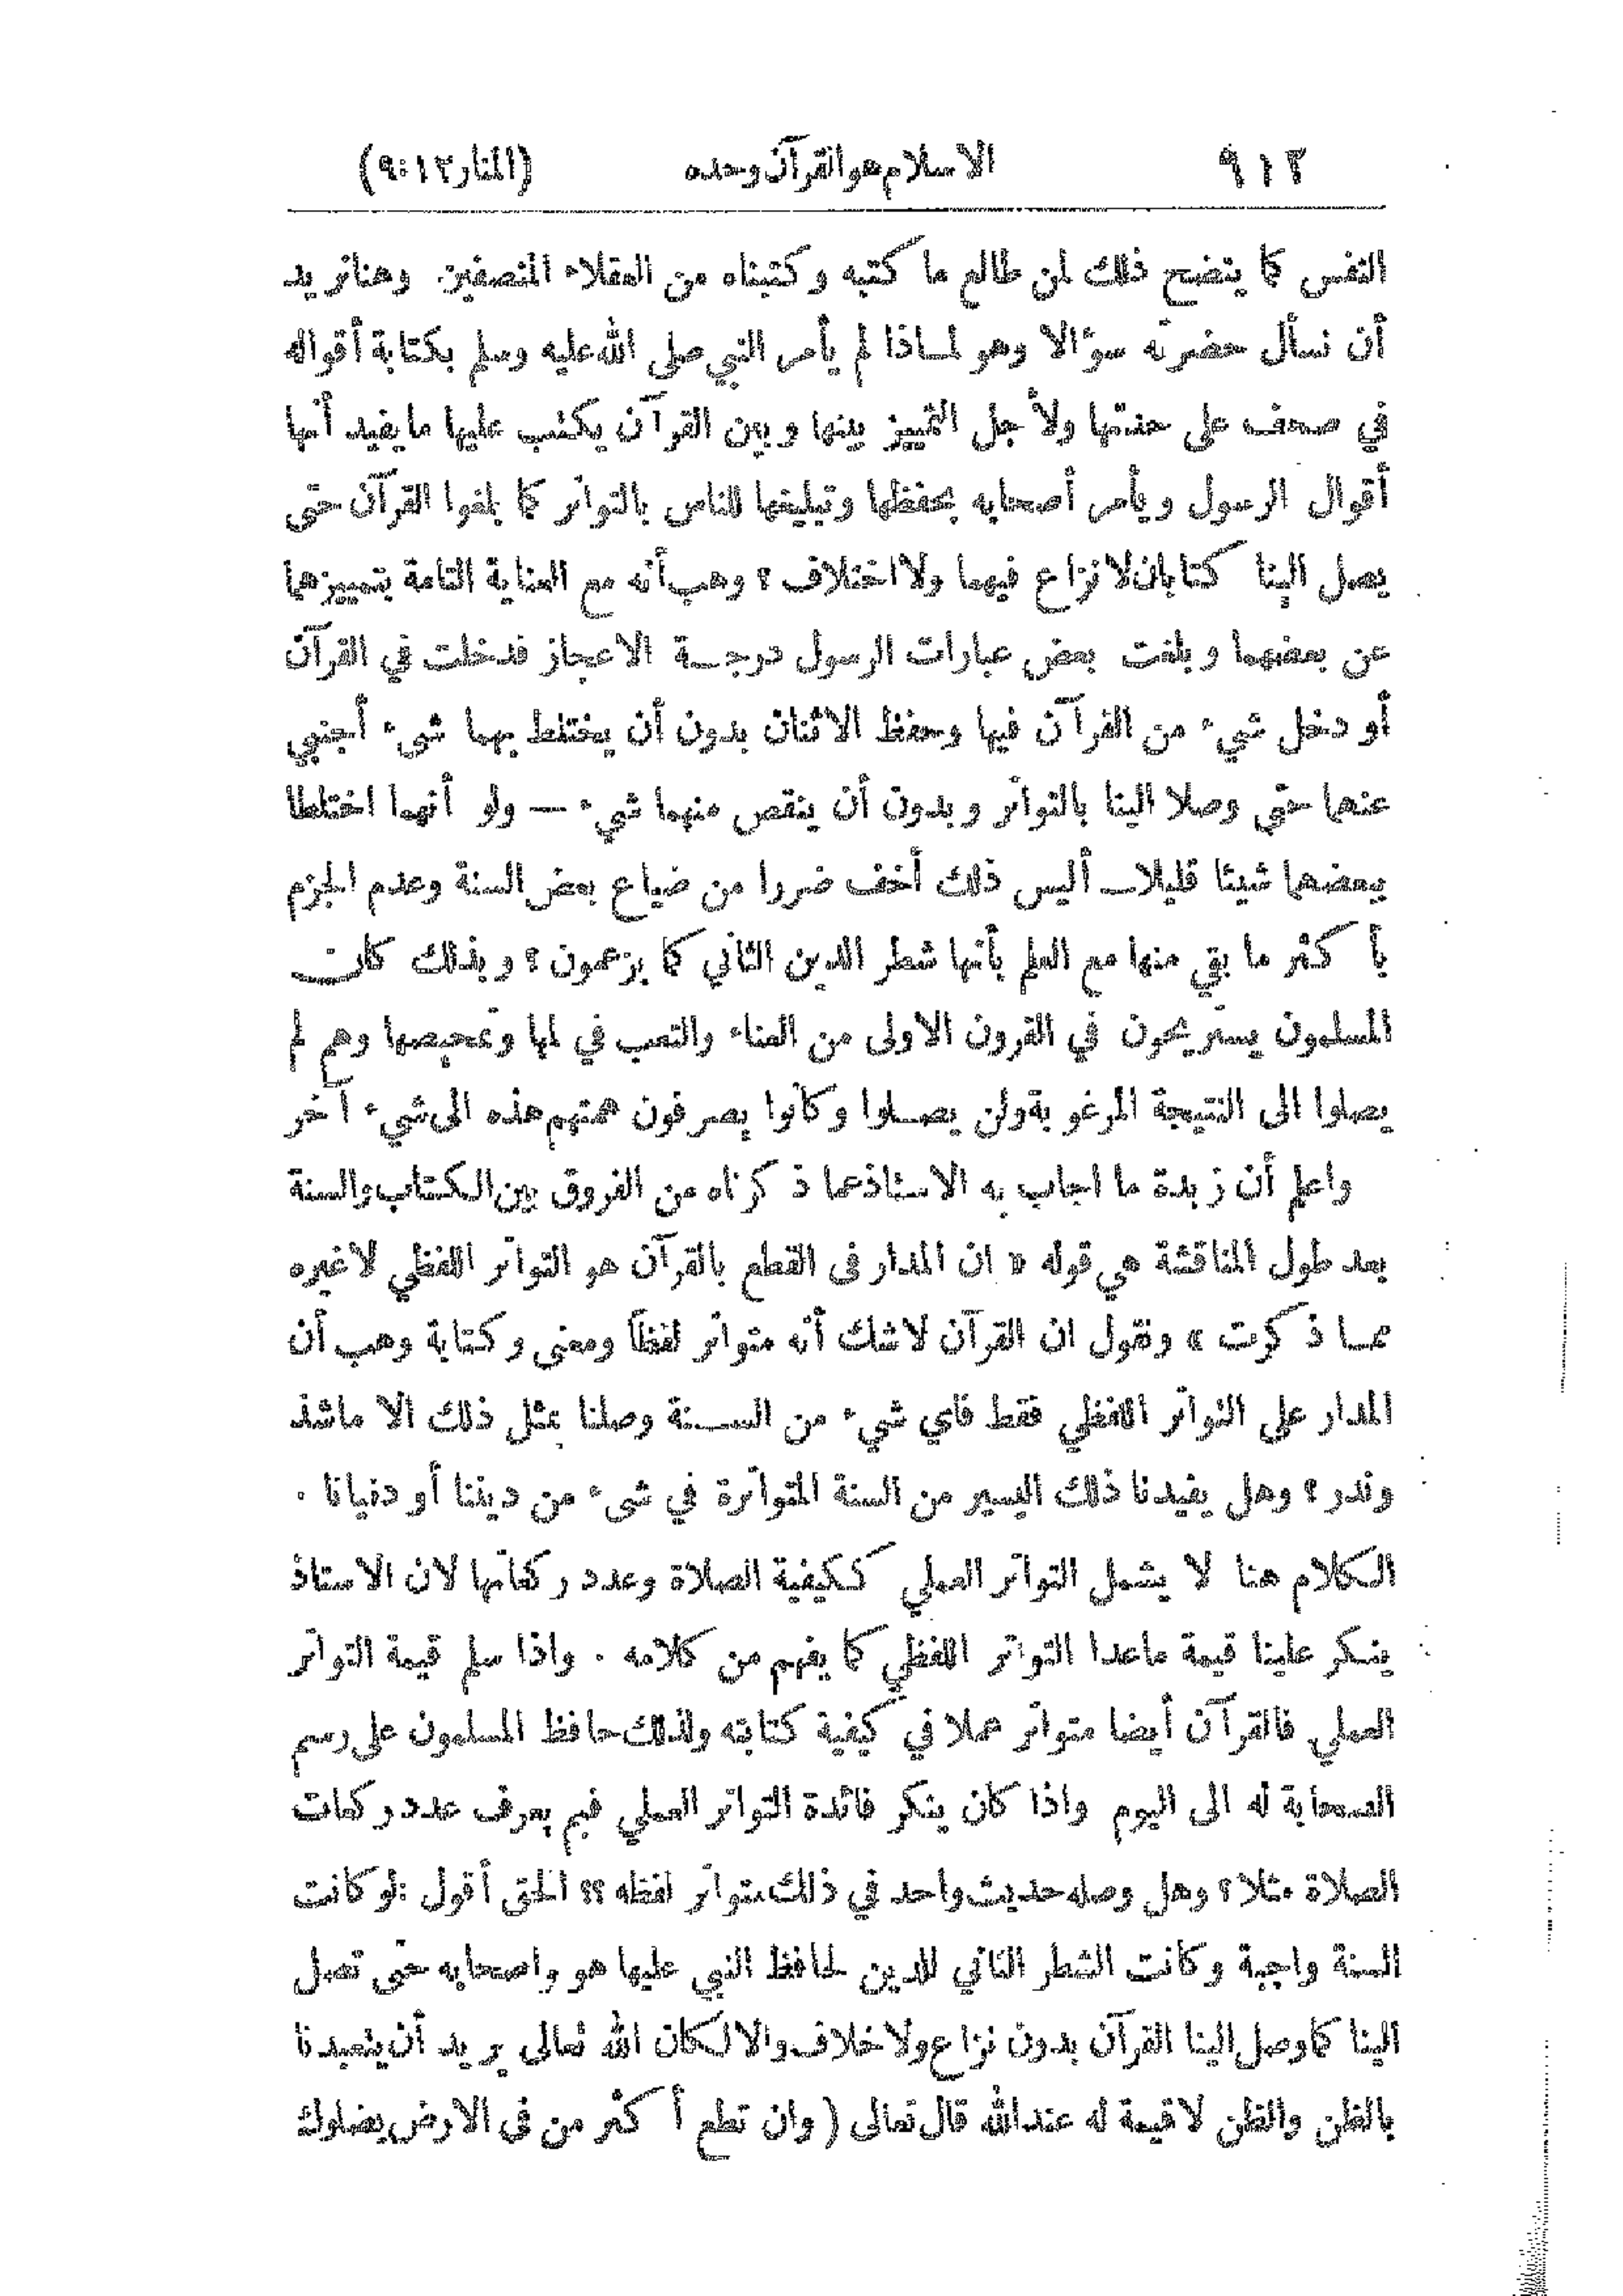 ٩١٢ الاسلام هو القرآن وحده (المنار ١٢:٩)
النفس كما يتضح ذلك لمن طالع ما كتبه وكتبناه من العقلاء المنصفين. وهنا نريد
أن نسأل حضرته سؤالا وهو لماذا لم يأمر النبي صلى الله عليه وسلم بكتابة أقواله
في صحف على حدتها ولأجل التمييز بينها وبين القرآن يكتب عليها ما يفيد أنها
أقوال الرسول ويأمر أصحابه بحفظها وتبليغها للناس بالتواتر كما بلغوا القرآن حتى
يصل الينا كتابان لا نزاع فيهما ولا اختلاف ؟ وهب أنه مع العناية التامة بتمييزهما
عن بعضهما وبلغت بعض عبارات الرسول درجة الاعجاز فدخلت في القرآن
أو دخل شيء من القرآن فيها وحفظ الاثنان بدون أن يختلط بهما شيء أجنبي
عنهما حتى وصلا الينا بالتواتر وبدون أن ينقص منهما شيء — ولو أنهما اختلطا
ببعضهما شيئا قليلا – أليس ذلك أخف ضررا من ضياع بعض السنة وعدم الجزم
بأكثر ما بقي منها مع العلم بأنها شطر الدين الثاني كما يزعمون ؟ وبذلك كان
المسلمون يستريحون في القرون الاولى من العناء والتعب في لمها وتمحيصها وهم لم
يصلوا الى النتيجة المرغوبة ولن يصلوا وكانوا يصرفون همتهم هذه الى شيء آخر
واعلم أن زبدة ما اجاب به الاستاذ عما ذكرناه من الفروق بين الكتاب والسنة
بعد طول المناقشة هي قوله « ان المدار في القطع بالقرآن هو التواتر اللفظي لا غيره
مما ذكرت » ونقول ان القرآن لا شك أنه متواتر لفظاً ومعنى وكتابة وهب أن
المدار على التواتر اللفظي فقط فأي شيء من السنة وصلنا بمثل ذلك الا ما شذ
وندر ؟ وهل يفيدنا ذلك اليسير من السنة المتواترة في شيء من ديننا أو دنيانا .
الكلام هنا لا يشمل التواتر العملي ككيفية الصلاة وعدد ركعاتها لان الاستاذ
ينكر علينا قيمة ما عدا التواتر اللفظي كما يفهم من كلامه . واذا سلم قيمة التواتر
العملي فالقرآن أيضا متواتر عملا في كيفية كتابته ولذلك حافظ المسلمون على رسم
الصحابة له الى اليوم واذا كان ينكر فائدة التواتر العملي فبم يعرف عدد ركعات
الصلاة مثلا ؟ وهل وصله حديث واحد في ذلك متواتر لفظه ؟؟ الحق أقول : لو كانت
السنة واجبة وكانت الشطر الثاني للدين لحافظ النبي عليها هو واصحابه حتى تصل
الينا كما وصل الينا القرآن بدون نزاع ولا خلاف والا لكان الله تعالى يريد أن يتعبدنا
بالظن والظن لا قيمة له عند الله قال تعالى ( وان تطع أكثر من في الارض يضلوك